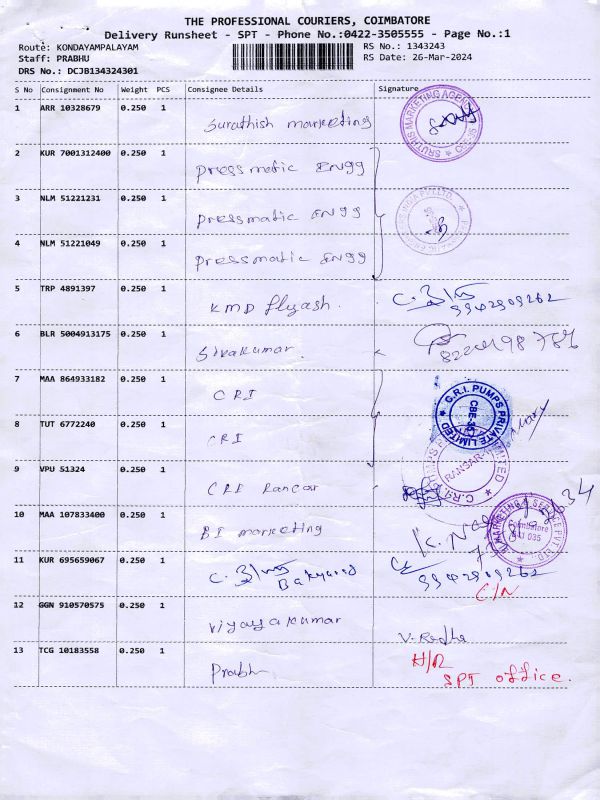 THE PROFESSIONAL COURIERS, COIMBATORE
Delivery Runsheet - SPT - Phone No.:0422-3505555 - Page No.:1
Route: KONDAYAMPALAYAM RS No.: 1343243
Staff: PRABHU RS Date: 26-Mar-2024
DRS No.: DCJB134324301
S No Consignment No Weight PCS Consignee Details Signature
1 ARR 10328679 0.250 1 Surathish marketing
2 KUR 7001312400 0.250 1 Pressmatic Engg
3 NLM 51221231 0.250 1 Pressmatic Engg
4 NLM 51221049 0.250 1 Pressmatic Engg
5 TRP 4891397 0.250 1 KMD flyash.
9942909262
6 BLR 5004913175 0.250 1 Sivakumar
7 MAA 864933182 0.250 1 CRI
C.R.I. PUMPS PRIVATE LIMITED
8 TUT 6772240 0.250 1 CRI
9 VPU 51324 0.250 1 CRI
10 MAA 107833400 0.250 1 BI marketing
Coimbatore
641 035
11 KUR 695659067 0.250 1
9942909262
C/N
12 GGN 910570575 0.250 1 Vijayakumar V. Radha
13 TCG 10183558 0.250 1 Prabh
H/R
SPT office.